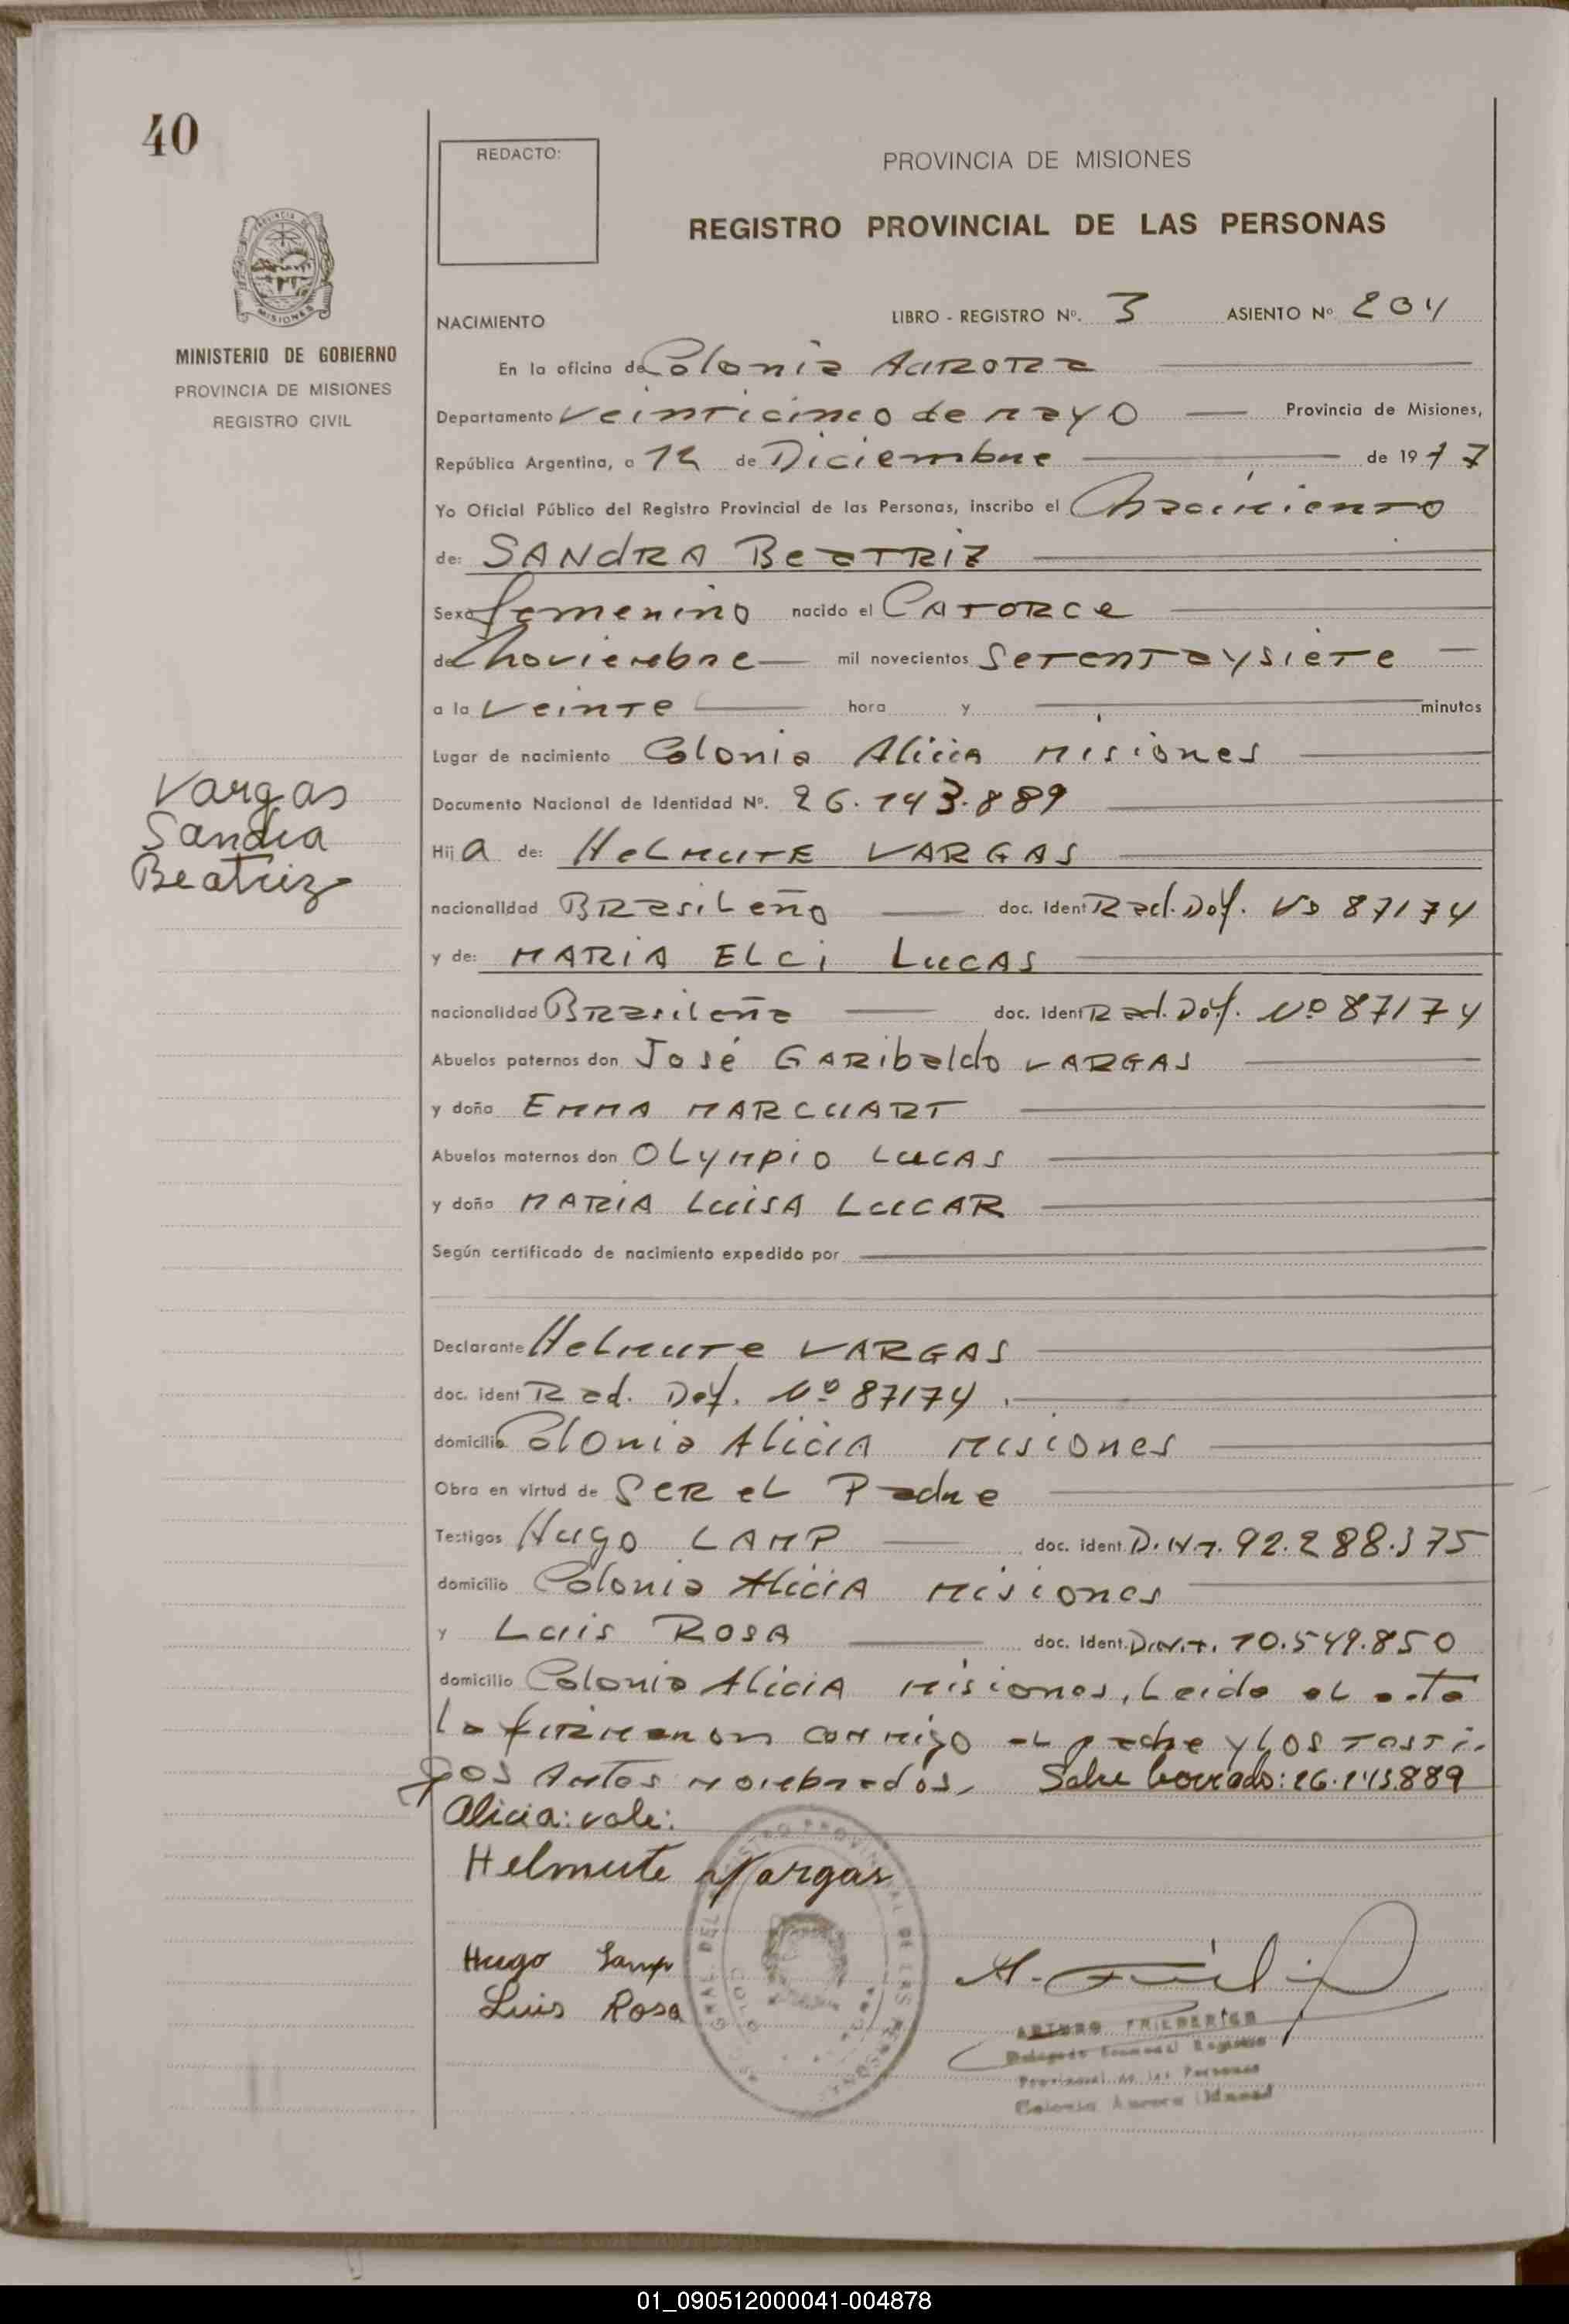 40
REDACTO:
PROVINCIA DE MISIONES
REGISTRO PROVINCIAL DE LAS PERSONAS
MISIONES
MINISTERIO DE GOBIERNO
PROVINCIA DE MISIONES
REGISTRO CIVIL
NACIMIENTO LIBRO - REGISTRO Nº. 3 ASIENTO Nº 204
En la oficina de Colonia Aurora
Departamento veinticinco de mayo Provincia de Misiones,
República Argentina, a 12 de Diciembre de 1977
Yo Oficial Público del Registro Provincial de las Personas, inscribo el Nacimiento
de: SANdRA BeaTRiz
Sexo femenino nacido el CATORce
de noviembre mil novecientos SeTenTaysieTe
a la veinTe hora y minutos
Lugar de nacimiento Colonia Alicia Misiones
Vargas
Sandra
Beatriz
Documento Nacional de Identidad Nº. 26.143.889
Hija de: HeLmuTE VARGAS
nacionalidad BRasiLeño doc. Ident Rad. Def. Nº 87174
y de: MARiA ELci LucAS
nacionalidad BRasileña doc. Ident Rad. Def. Nº 87174
Abuelos paternos don José GARibaldo VARGAS
y doña EMMA MARCUART
Abuelos maternos don OLyMpio LucAS
y doña MARiA LuiSA LucAR
Según certificado de nacimiento expedido por
Declarante HeLmuTe VARGAS
doc. ident Rad. Def. Nº 87174.
domicilio Colonia AliciA Misiones
Obra en virtud de SeR eL Padre
Testigos Hugo LAMP doc. ident. D.N.I. 92.288.375
domicilio Colonia AliciA Misiones
y Luis ROSA doc. Ident. D.N.I. 10.549.850
domicilio Colonia AliciA Misiones, Leida el acta
la firmaron conmigo el padre y los testi-
gos Antes nombrados, Sobre borrado: 26.143.889
Alicia: vale:
Helmute Vargas
Hugo Lamp
Luis Rosa
ARTURO FRIEDERICH
Provincial de las Personas
Colonia Aurora
01_090512000041-004878